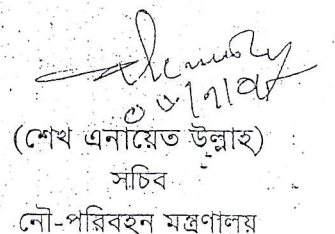 (শেখ এনায়েত উল্লাহ)
সচিব
নৌ-পরিবহন মন্ত্রণালয়